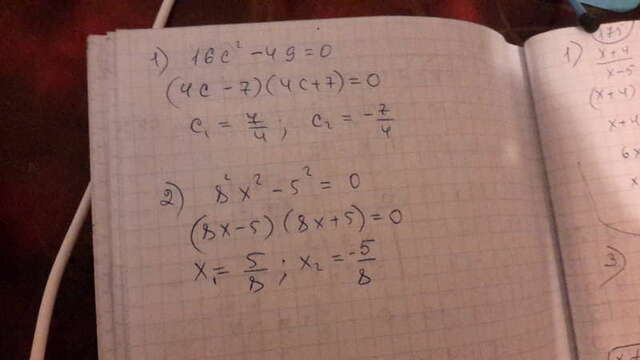 1) 16c² - 49 = 0
(4c - 7)(4c + 7) = 0
c₁ = 7/4 ; c₂ = -7/4
2) 8²x² - 5² = 0
(8x - 5)(8x + 5) = 0
x₁ = 5/8 ; x₂ = -5/8
1) x+4
x-5
(x+4)
x+4
6x
3)